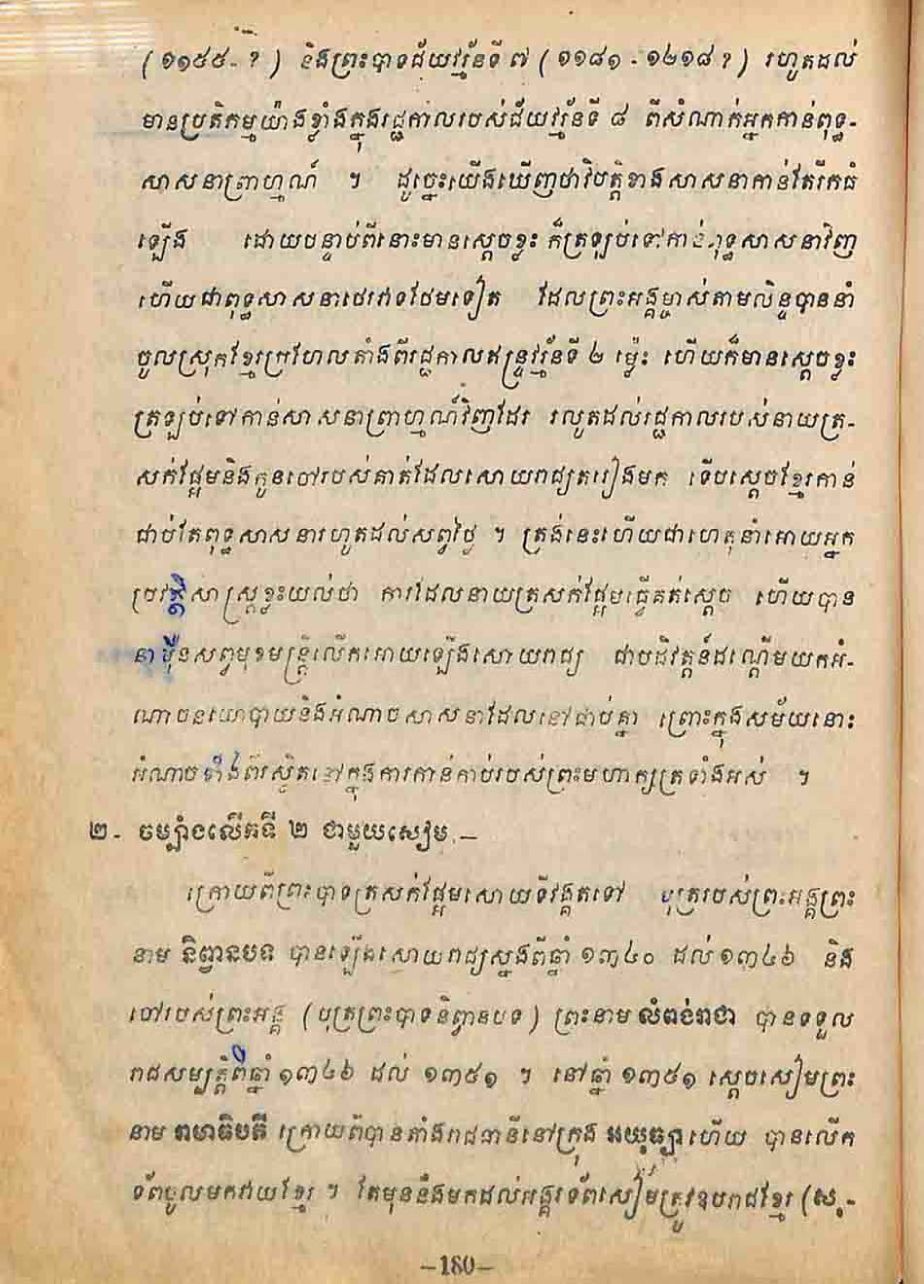 (១១៥៥- ? ) និងព្រះបាទជ័យវរ្ម័នទី ៧ ( ១១៨១ - ១២១៨ ? ) រហូតដល់
មានប្រតិកម្មយ៉ាងខ្លាំងក្នុងរជ្ជកាលរបស់ជ័យវរ្ម័នទី ៨ ពីសំណាក់អ្នកកាន់ពុទ្ធ-
សាសនាព្រាហ្មណ៍ ។ ដូច្នេះយើងឃើញថាវិបត្តិខាងសាសនាកាន់តែរីកធំ
ឡើង ដោយបន្ទាប់ពីនោះមានស្តេចខ្លះ ក៏ត្រឡប់ទៅកាន់ពុទ្ធសាសនាវិញ
ហើយជាពុទ្ធសាសនាថេរវាទថែមទៀត ដែលព្រះអង្គម្ចាស់តាមលិន្ទបាននាំ
ចូលស្រុកខ្មែរប្រហែលតាំងពីរជ្ជកាលឥន្ទ្រវរ្ម័នទី ២ ម៉្លេះ ហើយក៏មានស្តេចខ្លះ
ត្រឡប់ទៅកាន់សាសនាព្រាហ្មណ៍វិញដែរ រលូតដល់រជ្ជកាលរបស់នាយត្រ-
សក់ផ្អែមនិងកូនចៅរបស់គាត់ដែលសោយរាជ្យតរៀងមក ទើបស្តេចខ្មែរកាន់
ជាប់តែពុទ្ធសាសនារហូតដល់សព្វថ្ងៃ ។ ត្រង់នេះហើយជាហេតុនាំអោយអ្នក
ប្រវត្តិសាស្ត្រខ្លះយល់ថា ការដែលនាយត្រសក់ផ្អែមធ្វើគត់ស្តេច ហើយបាន
នាម៉ឺនសព្វមុខមន្ត្រីលើកអោយឡើងសោយរាជ្យ ជាបដិវត្តន៍ដណ្តើមយកអំ-
ណាចនយោបាយនិងអំណាចសាសនាដែលនៅជាប់គ្នា ព្រោះក្នុងសម័យនោះ
អំណាចទាំងពីរស្ថិតនៅក្នុងការកាន់កាប់របស់ព្រះមហាក្សត្រទាំងអស់ ។
២- ចម្បាំងលើកទី ២ ជាមួយសៀម.—
ក្រោយពីព្រះបាទត្រសក់ផ្អែមសោយទីវង្គតទៅ បុត្ររបស់ព្រះអង្គព្រះ
នាម និព្វានបទ បានឡើងសោយរាជ្យស្នងពីឆ្នាំ ១៣៤០ ដល់ ១៣៤៦ និង
ចៅរបស់ព្រះអង្គ (បុត្រព្រះបាទនិព្វានបទ) ព្រះនាម លំពង់រាជា បានទទួល
រាជសម្បត្តិពីឆ្នាំ ១៣៤៦ ដល់ ១៣៥១ ។ នៅឆ្នាំ ១៣៥១ ស្តេចសៀមព្រះ
នាម រាមាធិបតី ក្រោយពីបានតាំងរាជធានីនៅក្រុង អយុធ្យា ហើយ បានលើក
ទ័ពចូលមកវាយខ្មែរ ។ តែមុននឹងមកដល់អង្គរទ័ពសៀមត្រូវឧបរាជខ្មែរ (ស,-
—180—